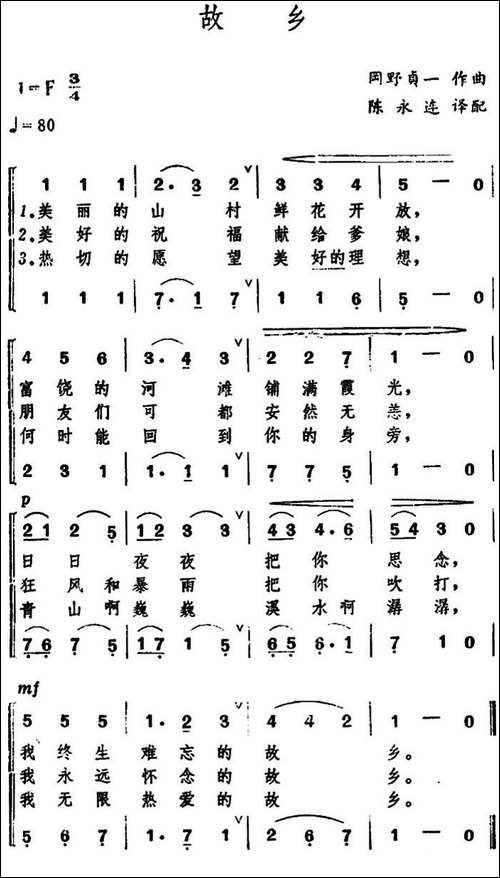 故 乡
1=F 3/4
岡野貞一 作曲
♩=80
陈永连 译配
1 1 1 | 2. 3 2 ∨ | 3 3 4 | 5 — 0
1.美丽的山村鲜花开放,
2.美好的祝福献给爹娘,
3.热切的愿望美好的理想,
1 1 1 | 7. 1 7 | 1 1 6 | 5 — 0
4 5 6 | 3. 4 3 ∨ | 2 2 7 | 1 — 0
富饶的河滩铺满霞光,
朋友们可都安然无恙,
何时能回到你的身旁,
2 3 1 | 1. 1 1 ∨ | 7 7 5 | 1 — 0
p
21 2 5 | 12 3 3 ∨ | 43 4.6 | 54 3 0
日日夜夜把你思念,
狂风和暴雨把你吹打,
青山啊巍巍溪水啊潺潺,
76 7 5 | 17 1 5 ∨ | 65 6.1 | 7 1 0
mf
5 5 5 | 1. 2 3 ∨ | 4 4 2 | 1 — 0
我终生难忘的故乡。
我永远怀念的故乡。
我无限热爱的故乡。
5 6 7 | 1. 7 1 ∨ | 2 6 7 | 1 — 0